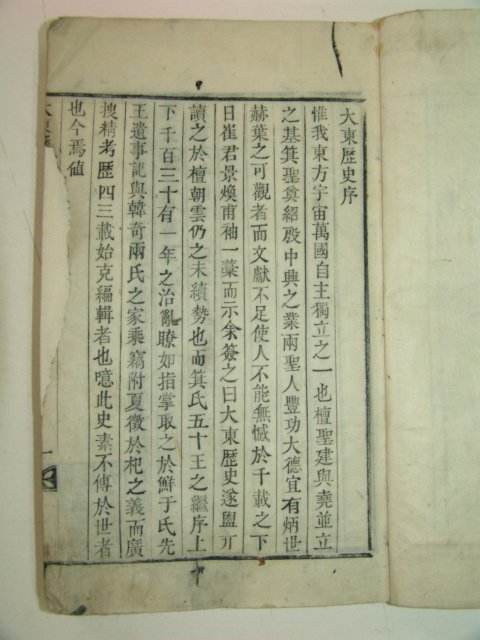 大東歷史序
惟我東方宇宙萬國自主獨立之一也檀聖建與堯並立
之基箕聖奠紹殷中興之業兩聖人豐功大德宜有炳世
赫葉之可觀者而文獻不足使人不能無憾於千載之下
日崔君景煥甫袖一藁而示余簽之曰大東歷史遂盥
讀之於檀朝雲仍之未續勢也而箕氏五十王之繼序上
下千百三十有一年之治亂瞭如指掌取之於鮮于氏先
王遺事記與韓奇兩氏之家乘竊附夏徵於杞之義而廣
搜精考歷四三載始克編輯者也噫此史素不傳於世者
也今焉値
大東